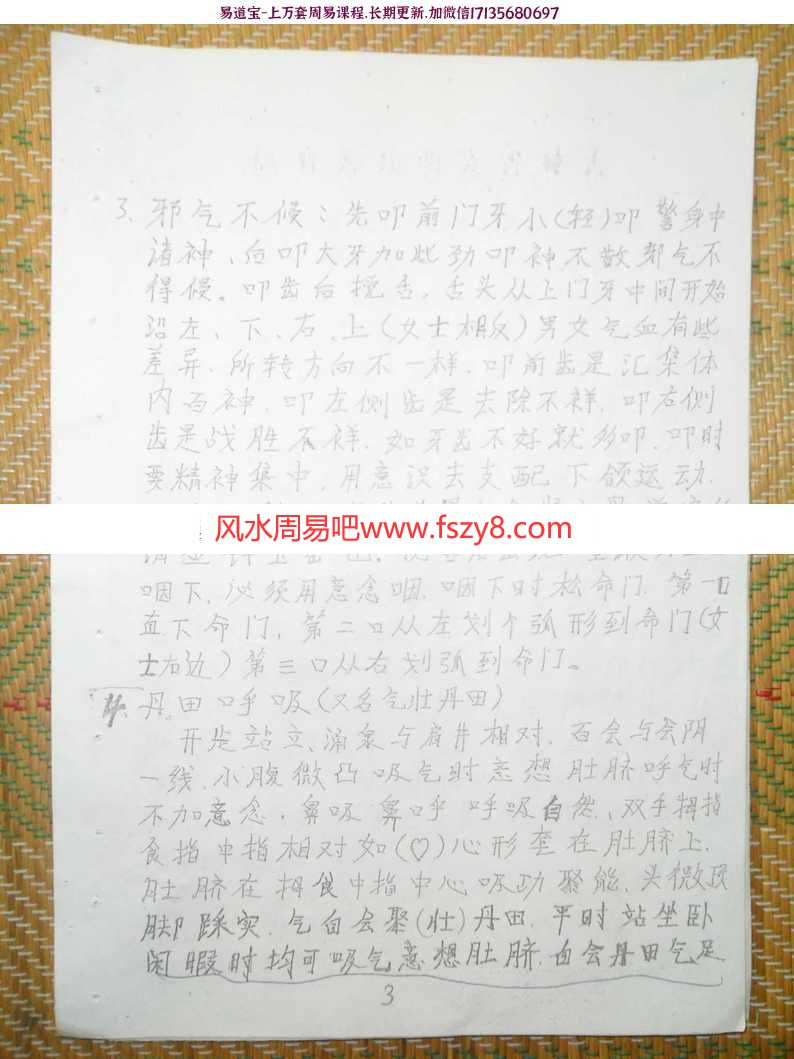 易道宝-上万套周易课程.长期更新.加微信17135680697
3、邪气不候：先叩前门牙小(轻)叩 警身中
诸神、后叩大牙加些劲叩神不散邪气不
得侵。叩齿后搅舌，舌头从上门牙中间开始
沿左、下、右、上(女士相反)男女气血有些
差异，所转方向不一样，叩前齿是汇集体
内百神，叩左侧齿是去除不祥，叩右侧
齿是战胜不祥，如牙齿不好就多叩，叩时
要精神集中，用意识去支配下颌运动.
风水周易吧www.fszy8.com
咽下，必须用意念咽，咽下时松命门，第一口
直下命门，第二口从左划个弧形到命门(女
士右边)第三口从右划弧到命门。
4、丹田呼吸(又名气壮丹田)
开足站立、涌泉与肩井相对，百会与会阴
一线，小腹微凸吸气时意想肚脐呼气时
不加意念，鼻吸鼻呼呼吸自然、双手拇指
食指中指相对如(♡)心形套在肚脐上，
肚脐在拇食中指中心吸功聚能、头微顶
脚踩实，气自会聚(壮)丹田，平时站坐卧
闲暇时均可吸气意想肚脐，自会丹田气足
3